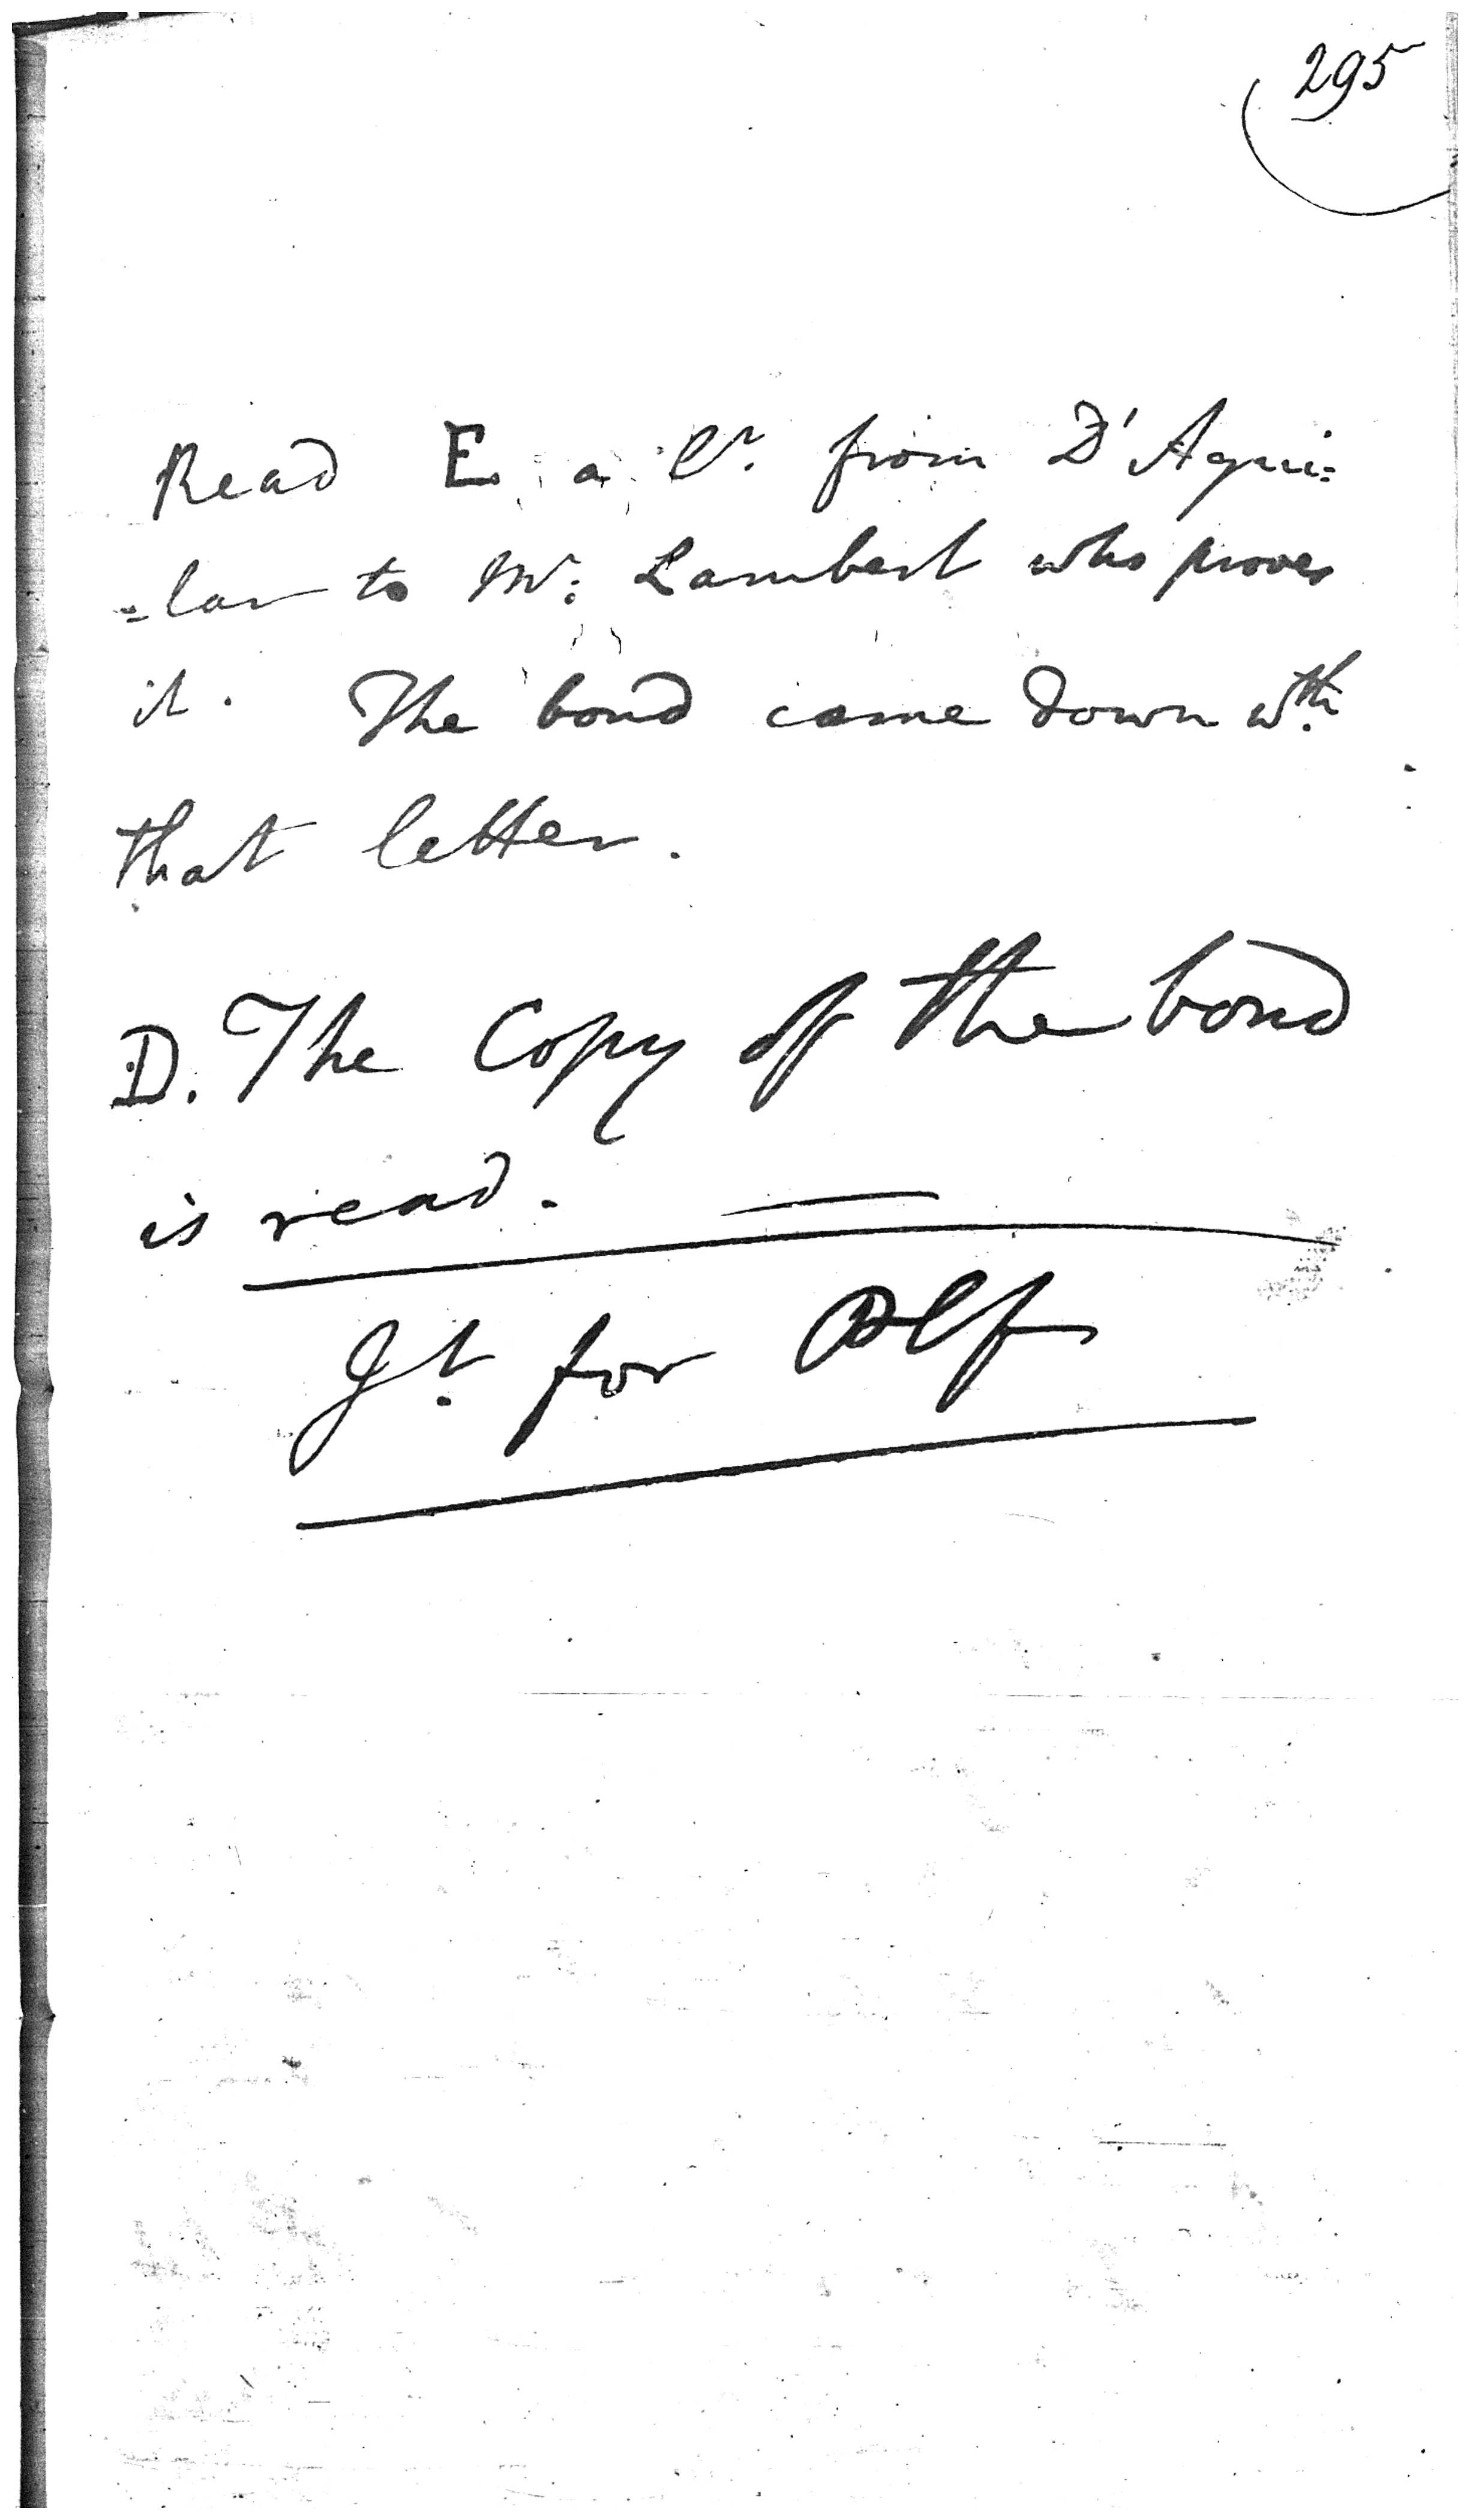 295
Read E. a lr. from D'Agui=
=lar to Mr. Lambert who proves
it. The bond came down wth.
that letter.
D. The Copy of the bond
is read. —
Jt. for Plf